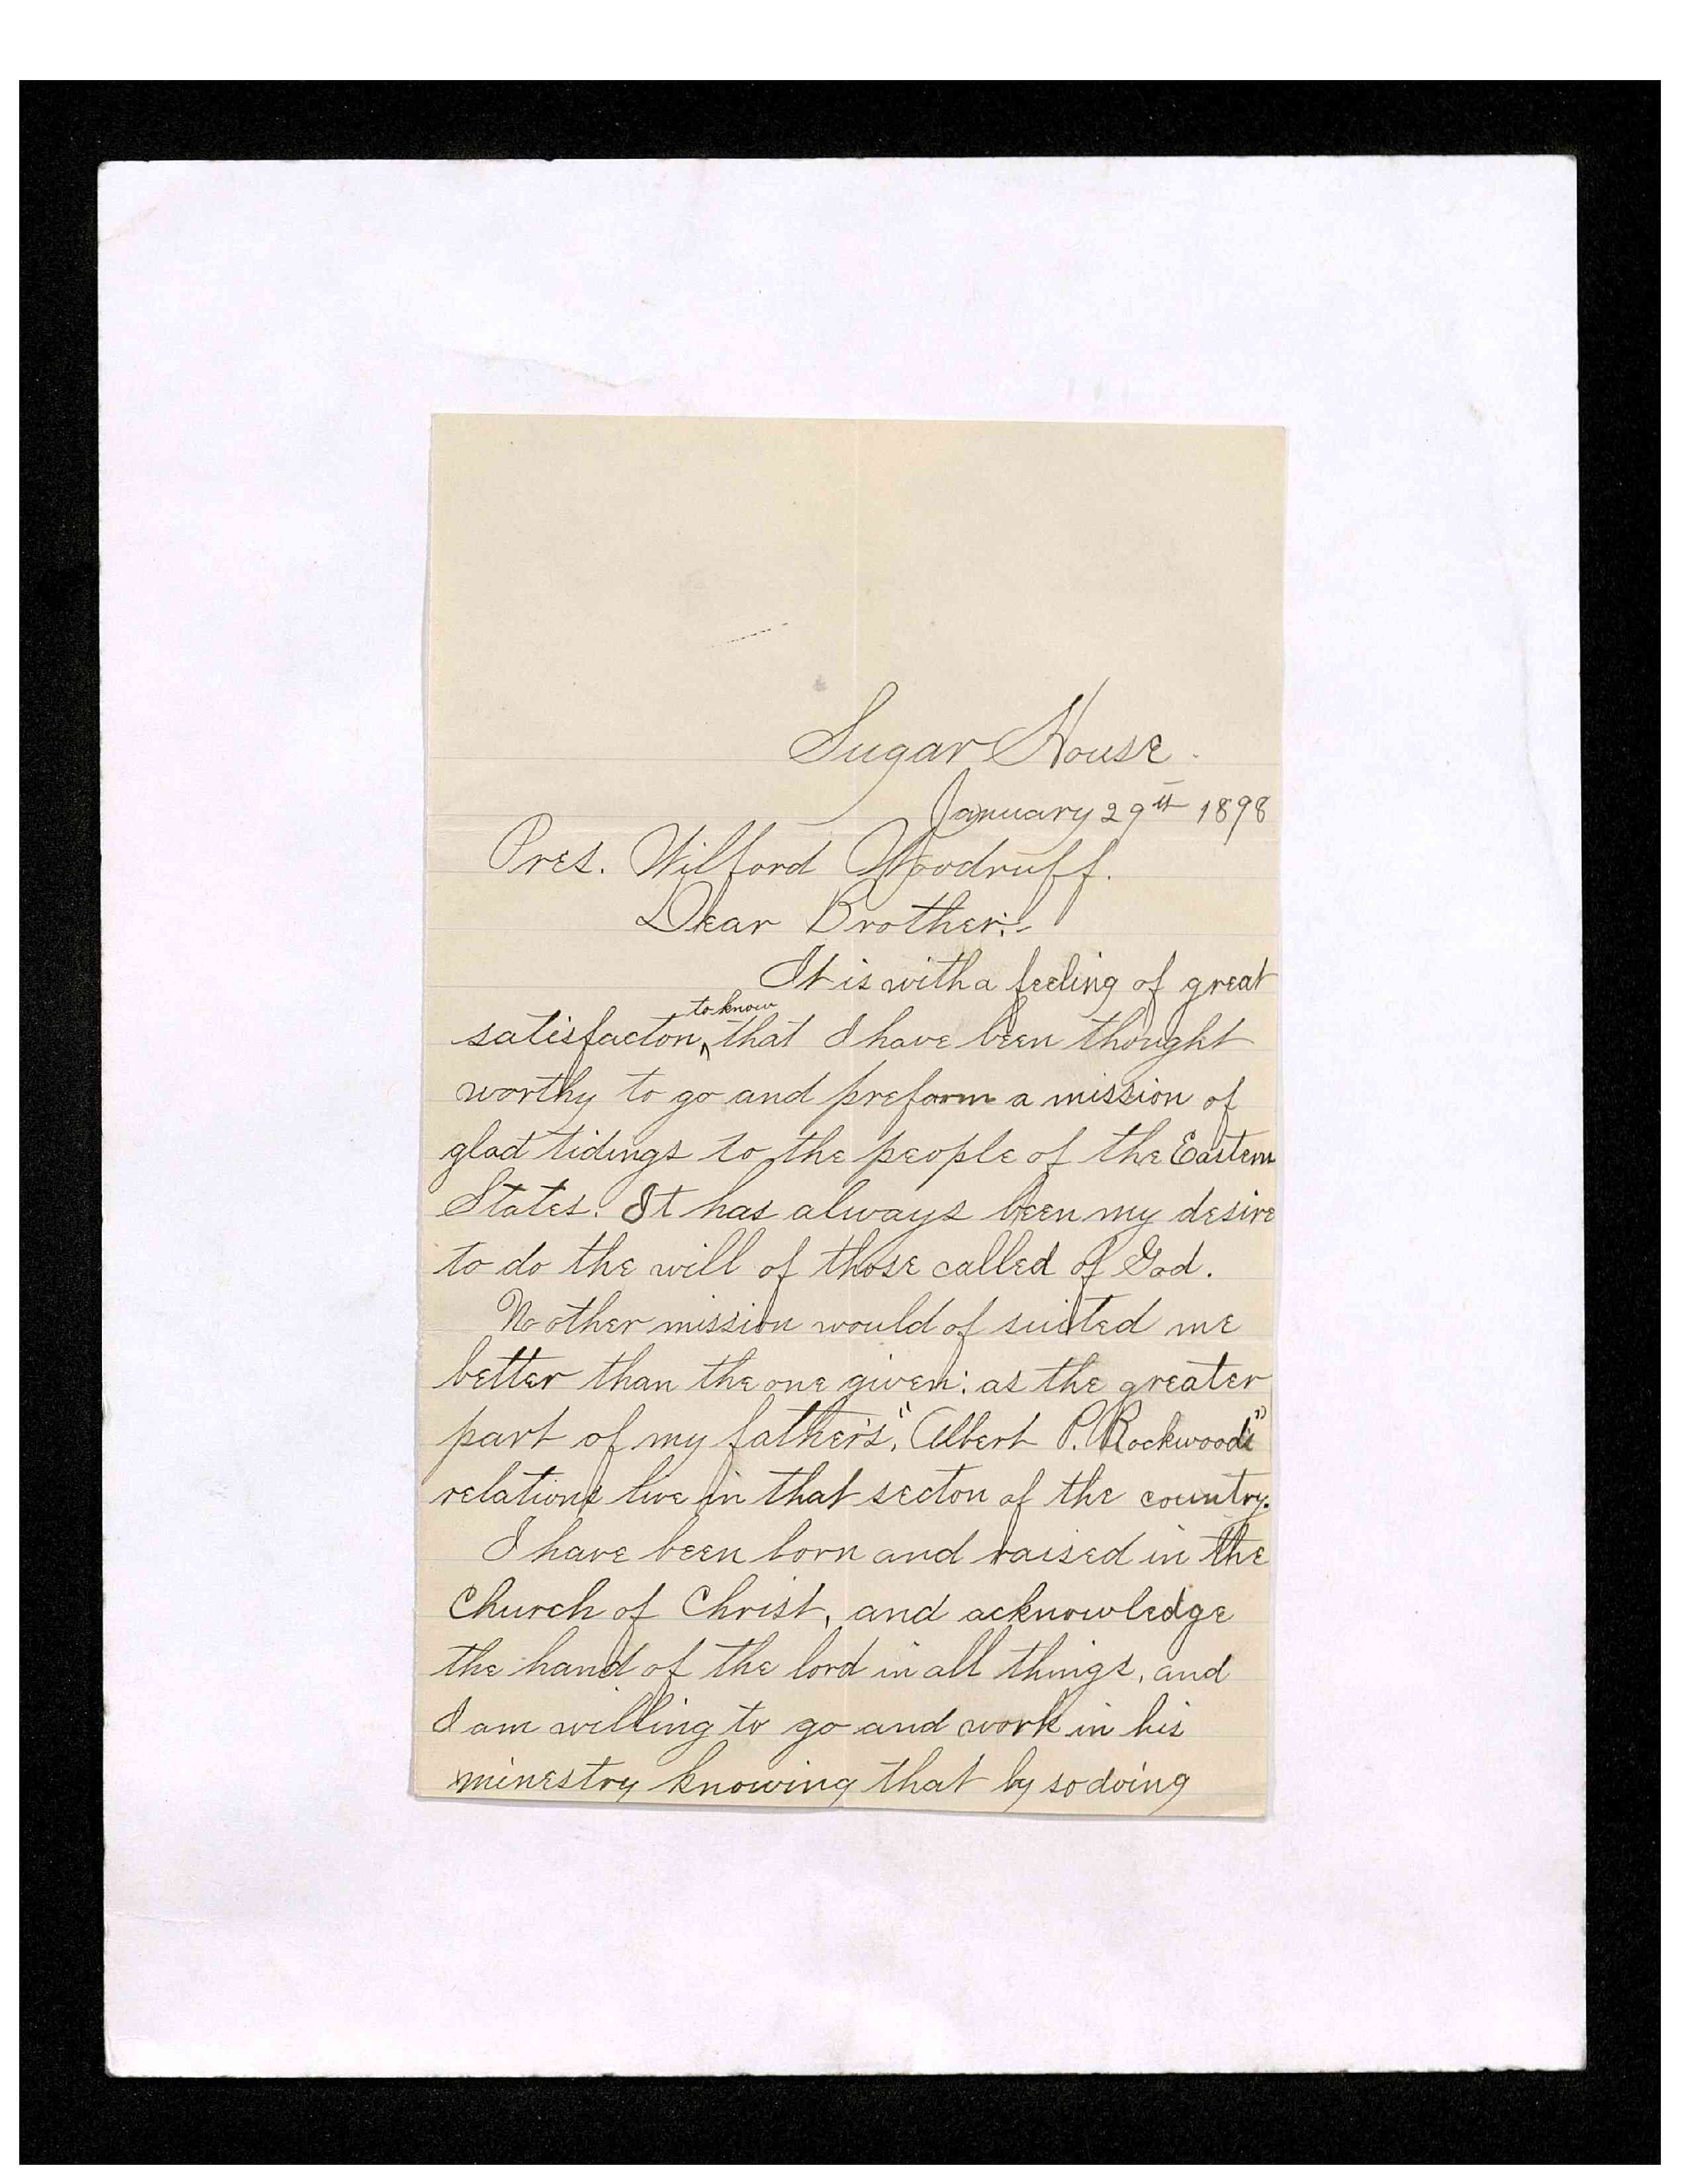 Sugar House.
January 29th 1898
Pres. Wilford Woodruff.
Dear Brother:-
It is with a feeling of great
to know
satisfacton, that I have been thought
worthy to go and preform a mission of
glad tidings to the people of the Eastern
States. It has always been my desire
to do the will of those called of God.
No other mission would of suited me
better than the one given: as the greater
part of my father's, "Albert P. Rockwood's"
relations live in that secton of the country.
I have been born and raised in the
Church of Christ, and acknowledge
the hand of the lord in all things, and
I am willing to go and work in his
minestry knowing that by so doing